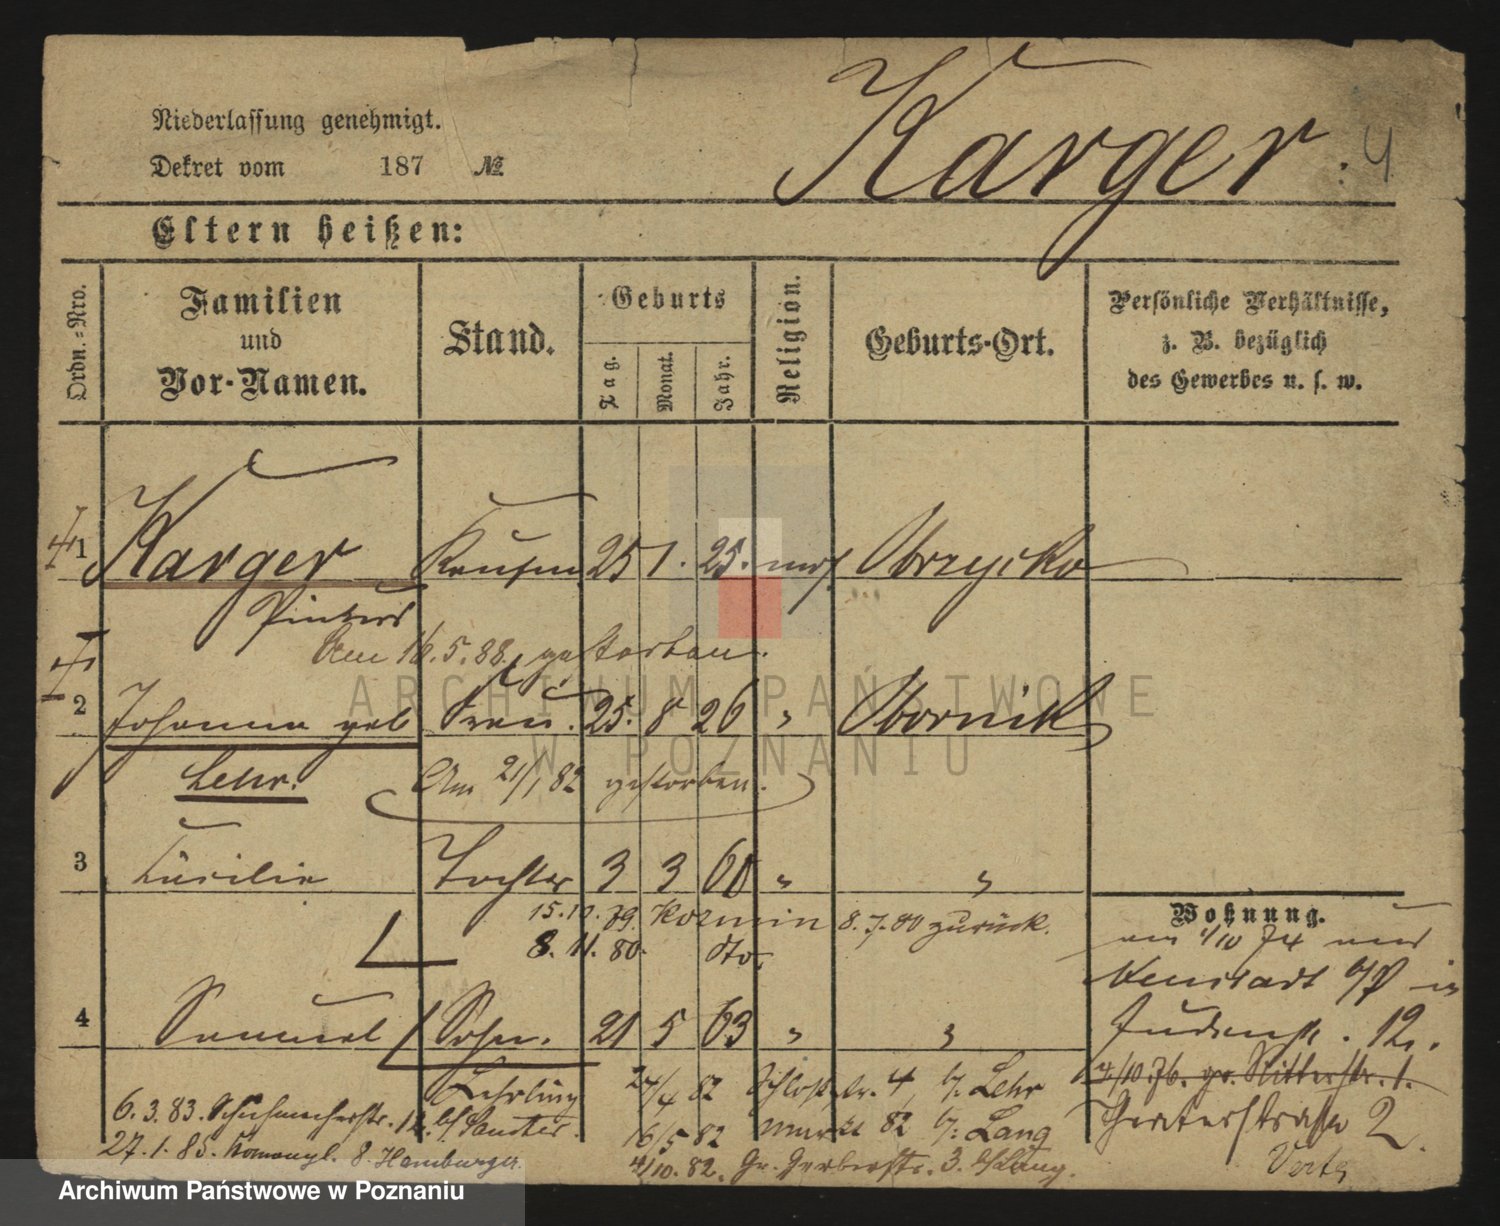 Niederlassung genehmigt.
Dekret vom 187 №
Karger : 4
Eltern heißen:
Ordn.-Nro.
Familien und Vor-Namen.
Stand.
Geburts
Tag.
Monat.
Jahr.
Religion.
Geburts-Ort.
Persönliche Verhältnisse,
z. B. bezüglich
des Gewerbes u. s. w.
1 Karger Kaufm 25 1. 25. mos. Obrzycko
Pinkus
Am 16.5.88. gestorben.
2 Johanna geb Frau. 25. 8 26 " Obornik
Lehr.
Am 21/1 82 gestorben.
3 Cäcilie Tochter 3 3 60 " "
Wohnung.
15.10.79. Kozmin 8.7.80 zurück.
8. 11. 80. dto.
am 1/10 74 aus
Neustadt a/W in
4 Samuel Sohn. 21 5 63 " "
Judenstr. 12.
Lehrling 27/4 82 Schloßstr. 4, b/: Lehr
1/10.76. gr. Ritterstr. 1.
6.3.83. Schuhmacherstr. 12. b/ Sander.
16/5 82 Markt 82 b/: Lang
Theaterstrasse 2.
27.1.85. 8. Hamburger
1/10.82. Gr. Gerberstr. 3. b/ Lang.
ARCHIWUM PAŃSTWOWE
W POZNANIU
Archiwum Państwowe w Poznaniu